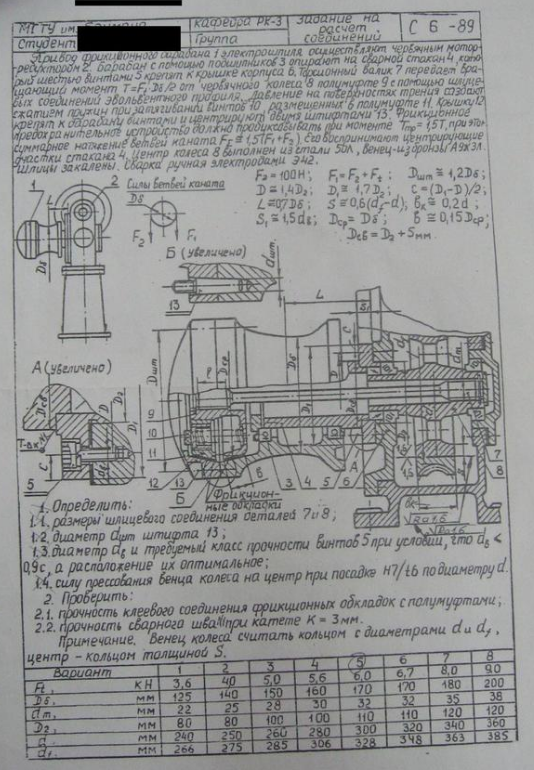 МГТУ им. Баумана
Кафедра РК-3
Задание на расчет соединений
С 6 -89
Студент
Группа
Привод фрикционного барабана 1 электрошпиля осуществляют червячным мотор-
редуктором 2. Барабан с помощью подшипников 3 опирают на сварной стакан 4, кото-
рый шестью винтами 5 крепят к крышке корпуса 6. Торсионный валик 7 передает вра-
щающий момент T=F₁·Dб/2 от червячного колеса 8 полумуфте 9 с помощью шлице-
вых соединений эвольвентного профиля. Давление на поверхности трения создают
сжатием пружин при затягивании винтов 10, размещенных в полумуфте 11. Крышку 12
крепят к барабану винтами и центрируют двумя штифтами 13. Фрикционное
предохранительное устройство должно пробуксовывать при моменте Tпр=1,5T, при этом
суммарное натяжение ветвей каната FΣ=1,5(F₁+F₂) воспринимают центрирующие
участки стакана 4. Центр колеса 8 выполнен из стали 50Л, венец-из бронзы А9Ж3Л.
Шлицы закалены. Сварка ручная электродами Э42.
F₂=100Н; F₁=Ft+F₂; Dшт≅1,2Dб;
D≅1,4D₂; D₁≅1,7D₂; C=(D₁-D)/2;
L≅0,7Dб; S≅0,6(d₁-d); bк≅0,2d;
S₁≅1,5dв; Dср=Dб; в≅0,15Dср;
Dсв=D₂+5мм.
Силы ветвей каната
Dб
F₂ F₁
1
2
L
Dб
Б (увеличено)
dшт.
13
А (увеличено)
Dсв
D
D₂
D₁
C
dв
5
Dшт
Dср
Dб
L
S₁
C
9
10
11
12
13
Б
в
3 4 5
А
6
7
8
Фрикцион-
ные обкладки
1. Определить:
1.1. размеры шлицевого соединения деталей 7 и 8;
1.2. диаметр dшт штифта 13;
1.3. диаметр dв и требуемый класс прочности винтов 5 при условии, что dв <
0,9с, а расположение их оптимальное;
1.4. силу прессования венца колеса на центр при посадке H7/t6 по диаметру d.
2. Проверить:
2.1. прочность клеевого соединения фрикционных обкладок с полумуфтами;
2.2. прочность сварного шва при катете К = 3мм.
Примечание. Венец колеса считать кольцом с диаметрами d и d₁,
центр - кольцом толщиной S.
Вариант 1 2 3 4 5 6 7 8
Ft, кН 3,6 40 5,0 5,6 6,0 6,7 8,0 9,0
Dб, мм 125 140 150 160 170 170 180 200
dт, мм 22 25 28 30 32 32 35 38
D₂, мм 80 80 100 100 110 110 120 120
d, мм 240 250 260 280 300 320 340 360
d₁, мм 266 275 285 306 328 348 363 385